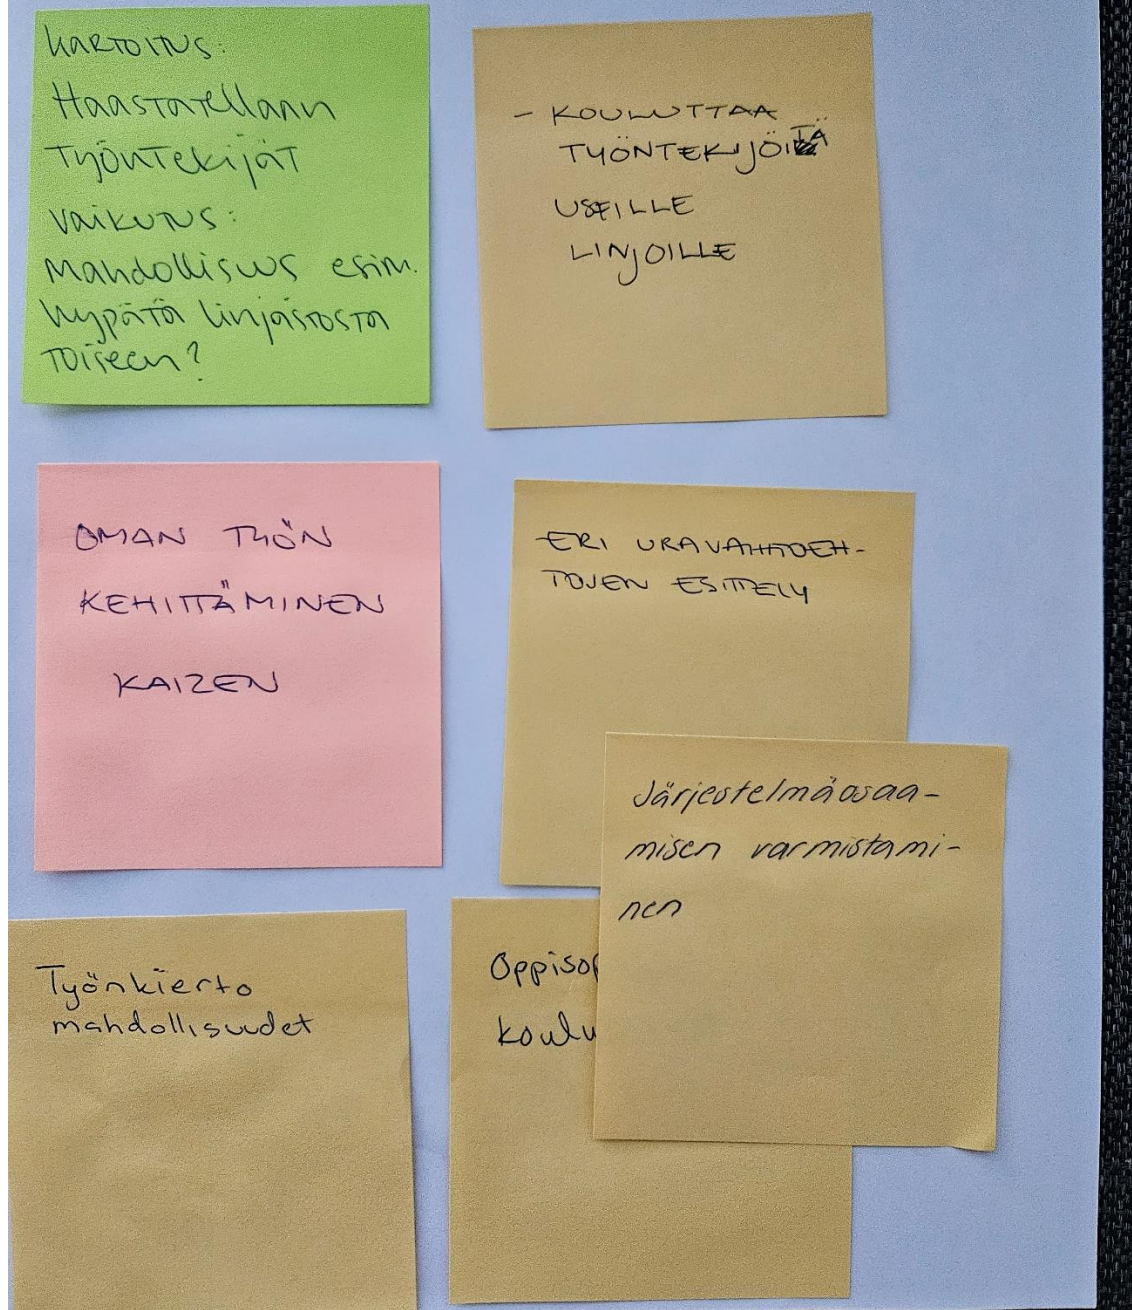 KARTOITUS:
Haastatellaan
Työntekijät
Vaikutus:
Mahdollisuus esim.
hypätä linjastosta
toiseen?
- KOULUTTAA
TYÖNTEKIJÖITÄ
USEILLE
LINJOILLE
OMAN TYÖN
KEHITTÄMINEN
KAIZEN
ERI URAVAHTOEH-
TOJEN ESITTELY
Järjestelmäosaa-
misen varmistami-
nen
Työnkierto
mahdollisuudet
Oppisop
koulu